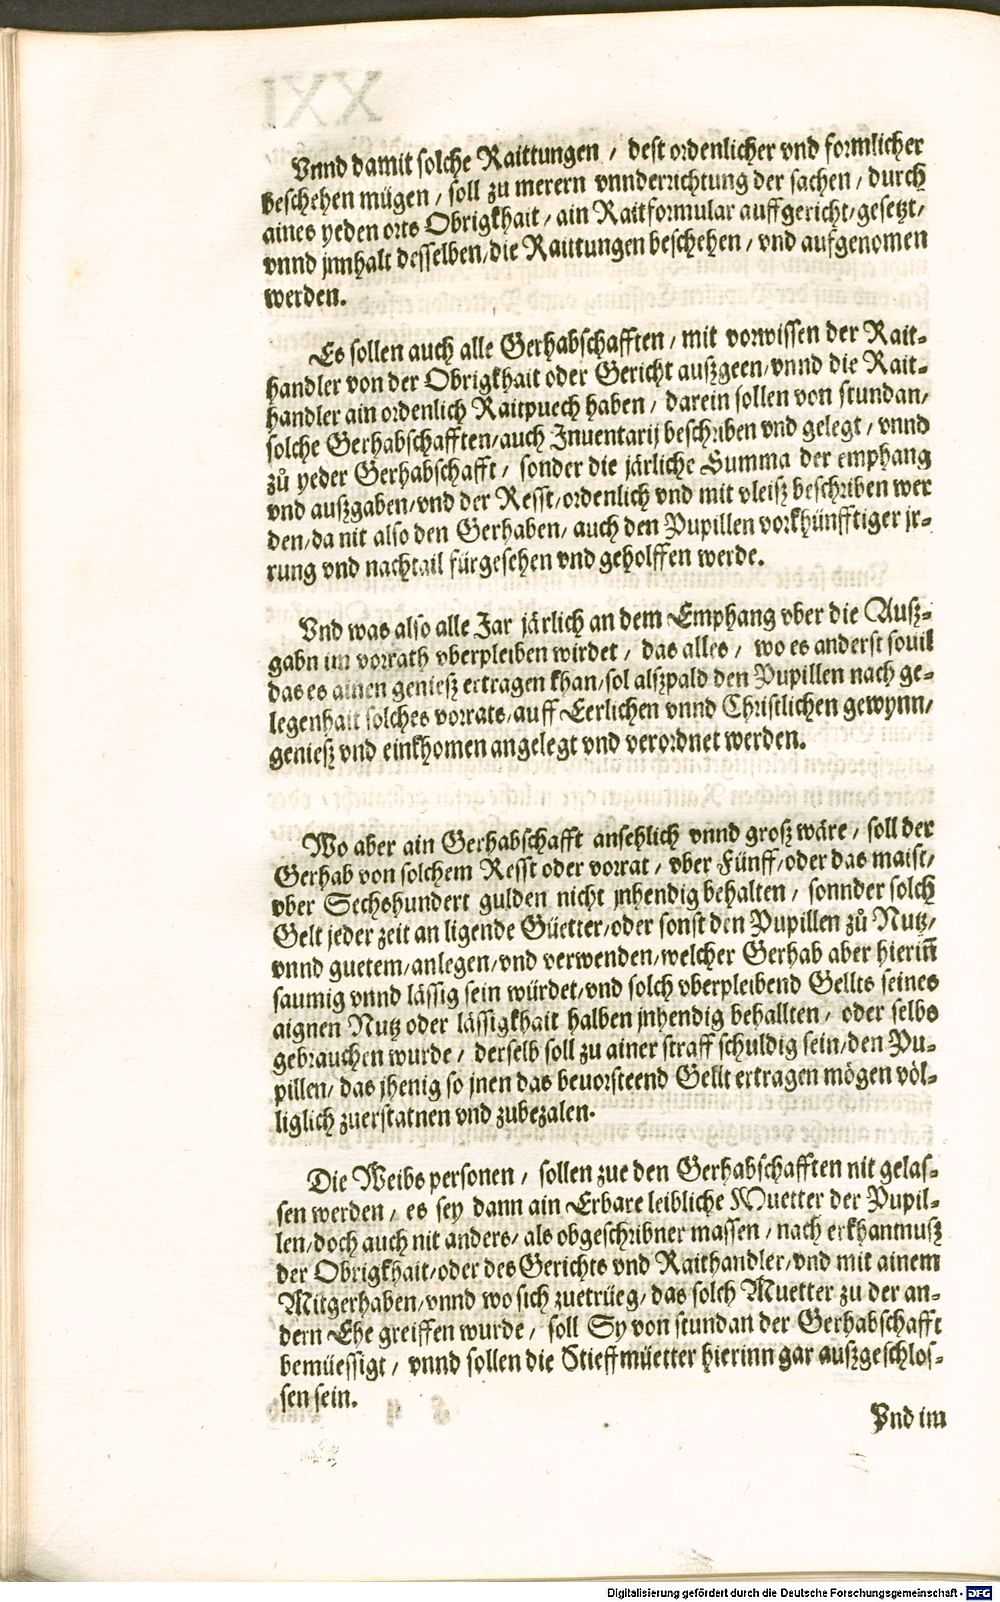 Vnnd damit solche Raittungen / dest ordenlicher vnd formlicher
beschehen mügen / soll zu merern vnnderrichtung der sachen / durch
aines yeden orts Obrigkhait / ain Raitformular auffgericht / gesetzt /
vnnd jnnhalt desselben / die Raittungen beschehen / vnd aufgenomen
werden.
Es sollen auch alle Gerhabschafften / mit vorwissen der Rait-
handler von der Obrigkhait oder Gericht außgeen / vnnd die Rait-
handler ain ordenlich Raitpuech haben / darein sollen von stundan /
solche Gerhabschafften / auch Jnuentarij beschriben vnd gelegt / vnnd
zů yeder Gerhabschafft / sonder die järliche Summa der emphang
vnd außgaben / vnd der Resst / ordenlich vnd mit vleisz beschriben wer
den / da nit also den Gerhaben / auch den Pupillen vorkhünfftiger jr-
rung vnd nachtail fürgesehen vnd geholffen werde.
Vnd was also alle Jar järlich an dem Emphang vber die Auß-
gabn im vorrath vberpleiben wirdet / das alles / wo es anderst souil
das es ainen genieß ertragen khan / sol alßpald den Pupillen nach ge-
legenhait solches vorrats / auff Eerlichen vnnd Christlichen gewynn /
genieß vnd einkhomen angelegt vnd verordnet werden.
Wo aber ain Gerhabschafft ansehlich vnnd groß wäre / soll der
Gerhab von solchem Resst oder vorrat / vber Fünff / oder das maist /
vber Sechshundert gulden nicht jnhendig behalten / sonnder solch
Gelt jeder zeit an ligende Güetter / oder sonst den Pupillen zů Nutz /
vnnd guetem / anlegen / vnd verwenden / welcher Gerhab aber hierin̄
saumig vnnd lässig sein würdet / vnd solch vberpleibend Gellts seines
aignen Nutz oder lässigkhait halben jnhendig behallten / oder selbs
gebrauchen wurde / derselb soll zu ainer straff schuldig sein / den Pu-
pillen / das jhenig so jnen das beuorsteend Gellt ertragen mögen völ-
liglich zuerstatnen vnd zubezalen.
Die Weibs personen / sollen zue den Gerhabschafften nit gelas-
sen werden / es sey dann ain Erbare leibliche Muetter der Pupil-
len / doch auch nit anders / als obgeschribner massen / nach erkhantnuß
der Obrigkhait / oder des Gerichts vnd Raithandler / vnd mit ainem
Mitgerhaben / vnnd wo sich zuetrüeg / das solch Muetter zu der an-
dern Ehe greiffen wurde / soll Sy von stundan der Gerhabschafft
bemüessigt / vnnd sollen die Stieffmüetter hierinn gar außgeschlos-
sen sein.
Vnd im
Digitalisierung gefördert durch die Deutsche Forschungsgemeinschaft - DFG